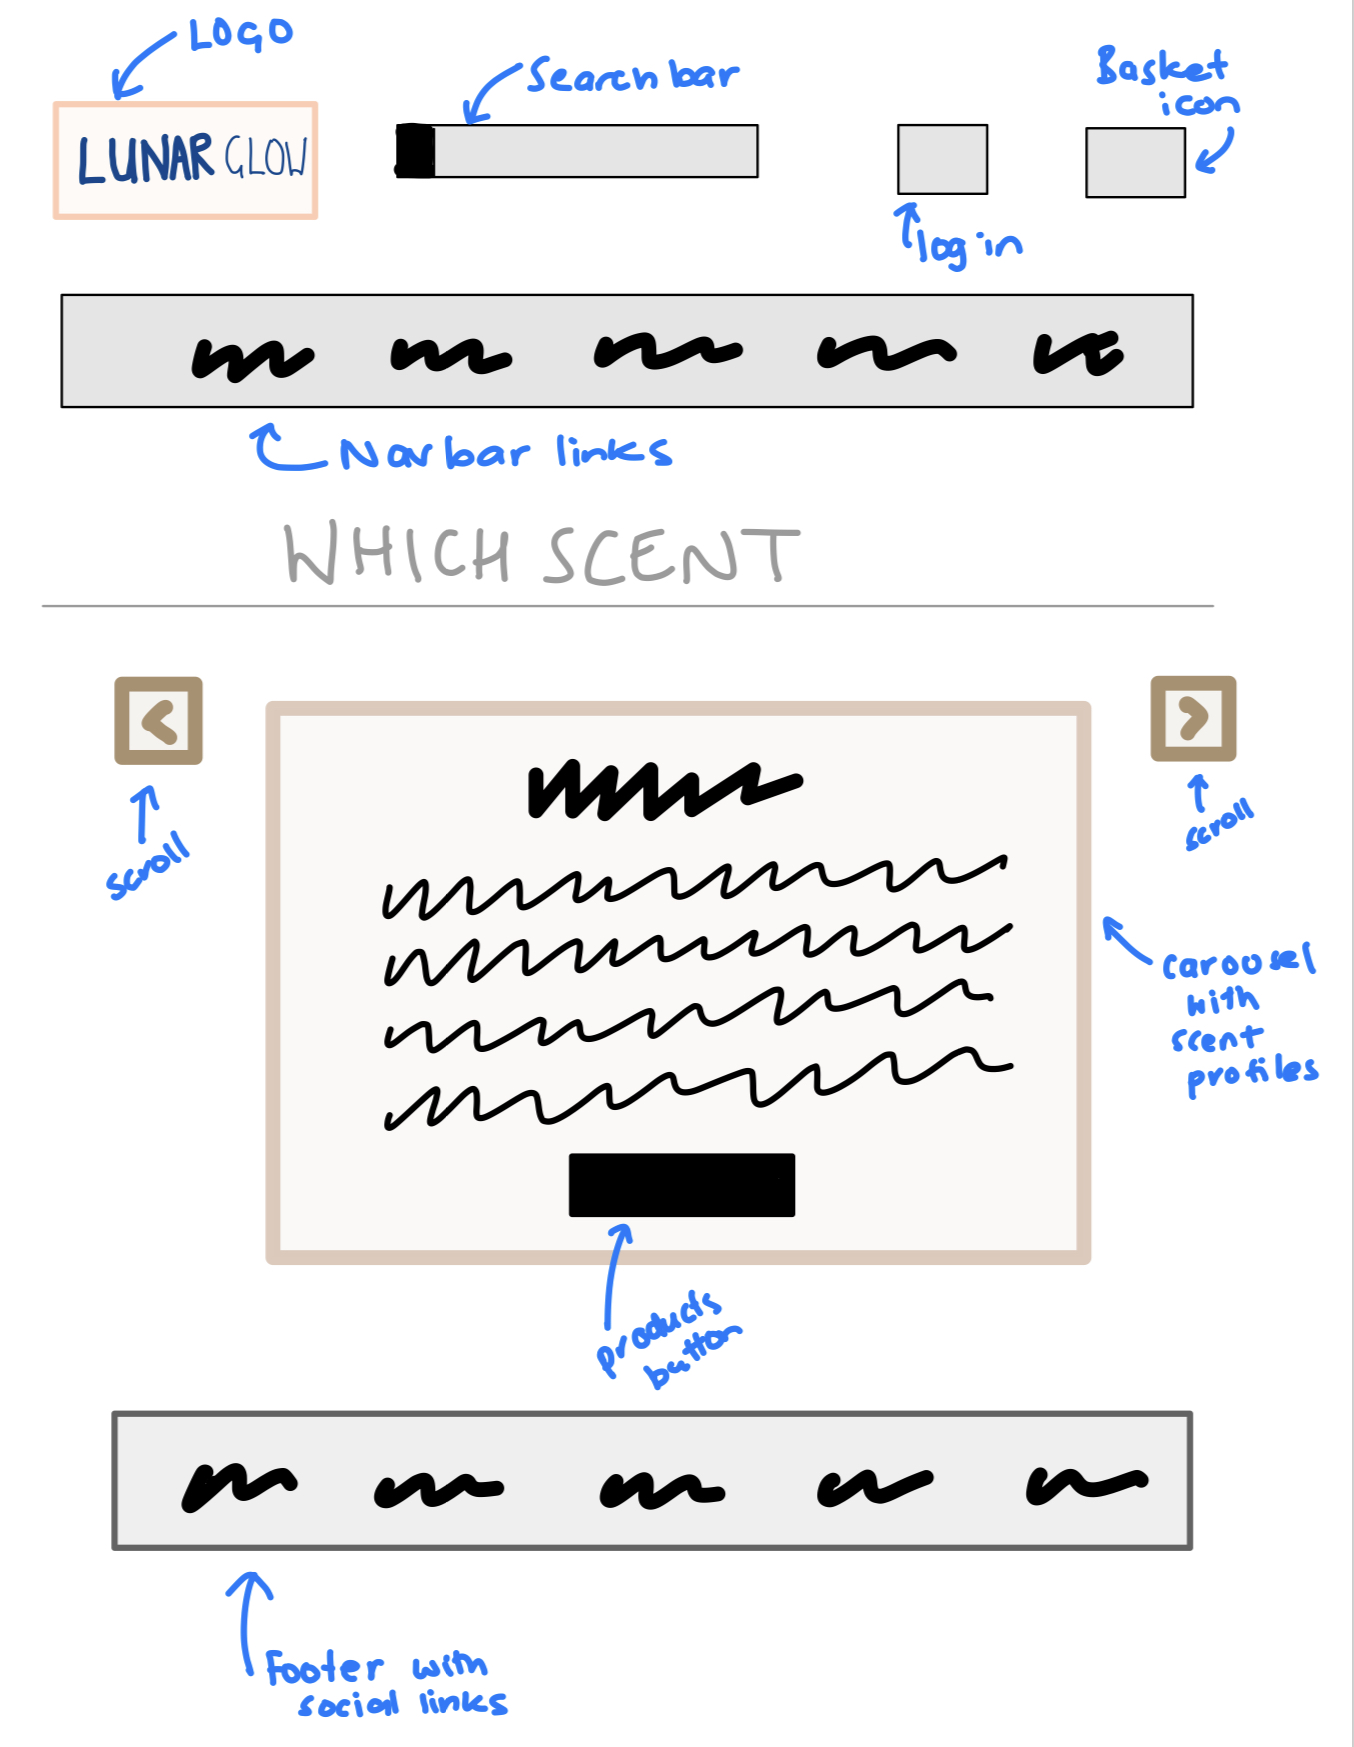 LOGO
Search bar
Basket
icon
LUNAR GLOW
log in
Navbar links
WHICH SCENT
<
>
scroll
scroll
carousel
with
scent
profiles
products
button
Footer with
social links